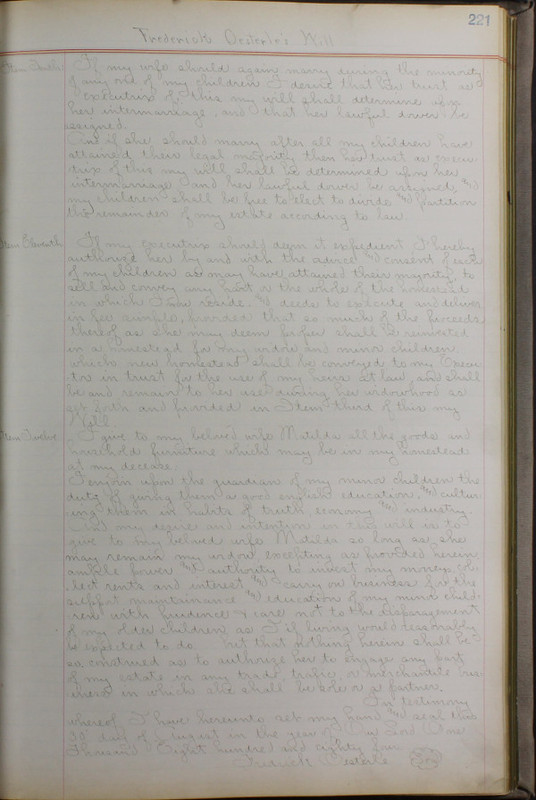 221
Frederick Oesterle's Will
Item Tenth. If my wife should again marry during the minority
of any one of my children I desire that her trust as
executrix of this my will shall determine upon
her intermarriage, and that her lawful dower be
assigned.
And if she should marry after all my children have
attained their legal majority then her trust as execu
trix of this my will shall be determined upon her
intermarriage and her lawful dower be assigned, and
my children shall be free to elect to divide and partition
the remainder of my estate according to law.
Item Eleventh. If my executrix should deem it expedient I hereby
authorize her by and with the advice and consent of such
of my children as may have attained their majority to
sell and convey any part or the whole of the homestead
in which I now reside and deeds to execute and deliver
in fee simple, provided that so much of the proceeds
thereof as she may deem proper shall be reinvested
in a homestead for my widow and minor children
which new homestead shall be conveyed to my Execu
trix in trust for the use of my heirs at law, and shall
be and remain to her use during her widowhood as
set forth and provided in Item third of this my
Will.
Item Twelve. I give to my beloved wife Matilda all the goods and
household furniture which may be in my homestead
at my decease.
I enjoin upon the guardian of my minor children the
duty of giving them a good english education, and cultur
ing them in habits of truth, economy and industry.
And my desire and intention in this will is to
give to my beloved wife Matilda so long as she
may remain my widow excepting as provided herein,
ample power and authority to invest my money, col
lect rents and interest and carry on business for the
support maintainance and education of my minor child
ren with prudence & care not to the disparagement
of my older children, as I if living would reasonably
be expected to do. but that nothing herein shall be
so construed as to authorize her to engage any part
of my estate in any trade, trafic, or merchantile bus
iness in which she shall be sole or a partner.
In testimony
whereof I have hereunto set my hand and seal this
30" day of August in the year of Our Lord One
Thousand Eight hundred and eighty four
Fredrick Oesterle